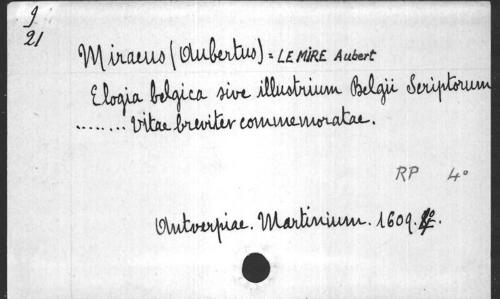 J
21
Miraeus (Aubertus) = LE MIRE Aubert
Elogia belgica sive illustrium Belgii Scriptorum
........ Vitae breviter commemoratae.
RP 4°
Antverpiae. Martinium. 1609.